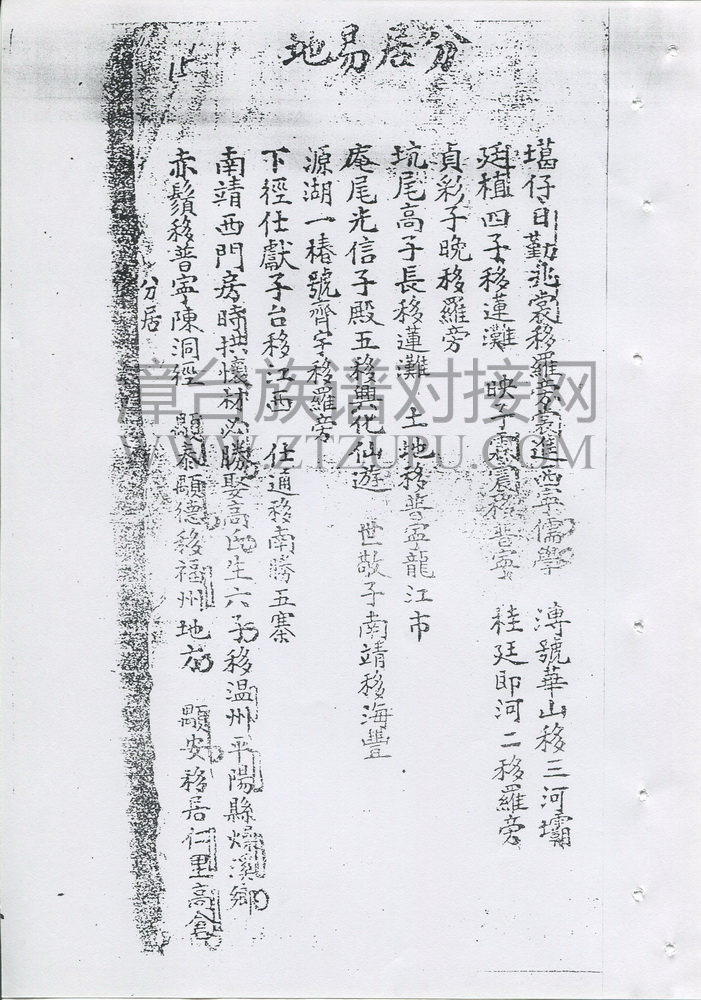 分居易地
15
墈仔日勤兆裳移羅旁裳進西寧儒學 溥號華山移三河壩
廷植四子移蓮灘 映子霖宸移普寧 桂廷即河二移羅旁
貞彩子晚移羅旁
坑尾高子長移蓮灘 土地移普寧龍江市
庵尾光信子殿五移興化仙遊 世敬子南靖移海豐
源湖一椿號齊宇移羅旁
下徑仕獻子台移江西 仕通移南勝五寨
南靖西門房時拱懷材必勝娶高氏生六子移温州平陽縣燥溪鄉
赤鬚移普寧陳洞徑 顯泰顯德移福州地方 顯安移居仁里高倉
分居
漳台族谱对接网
WWW.ZTZUPU.COM